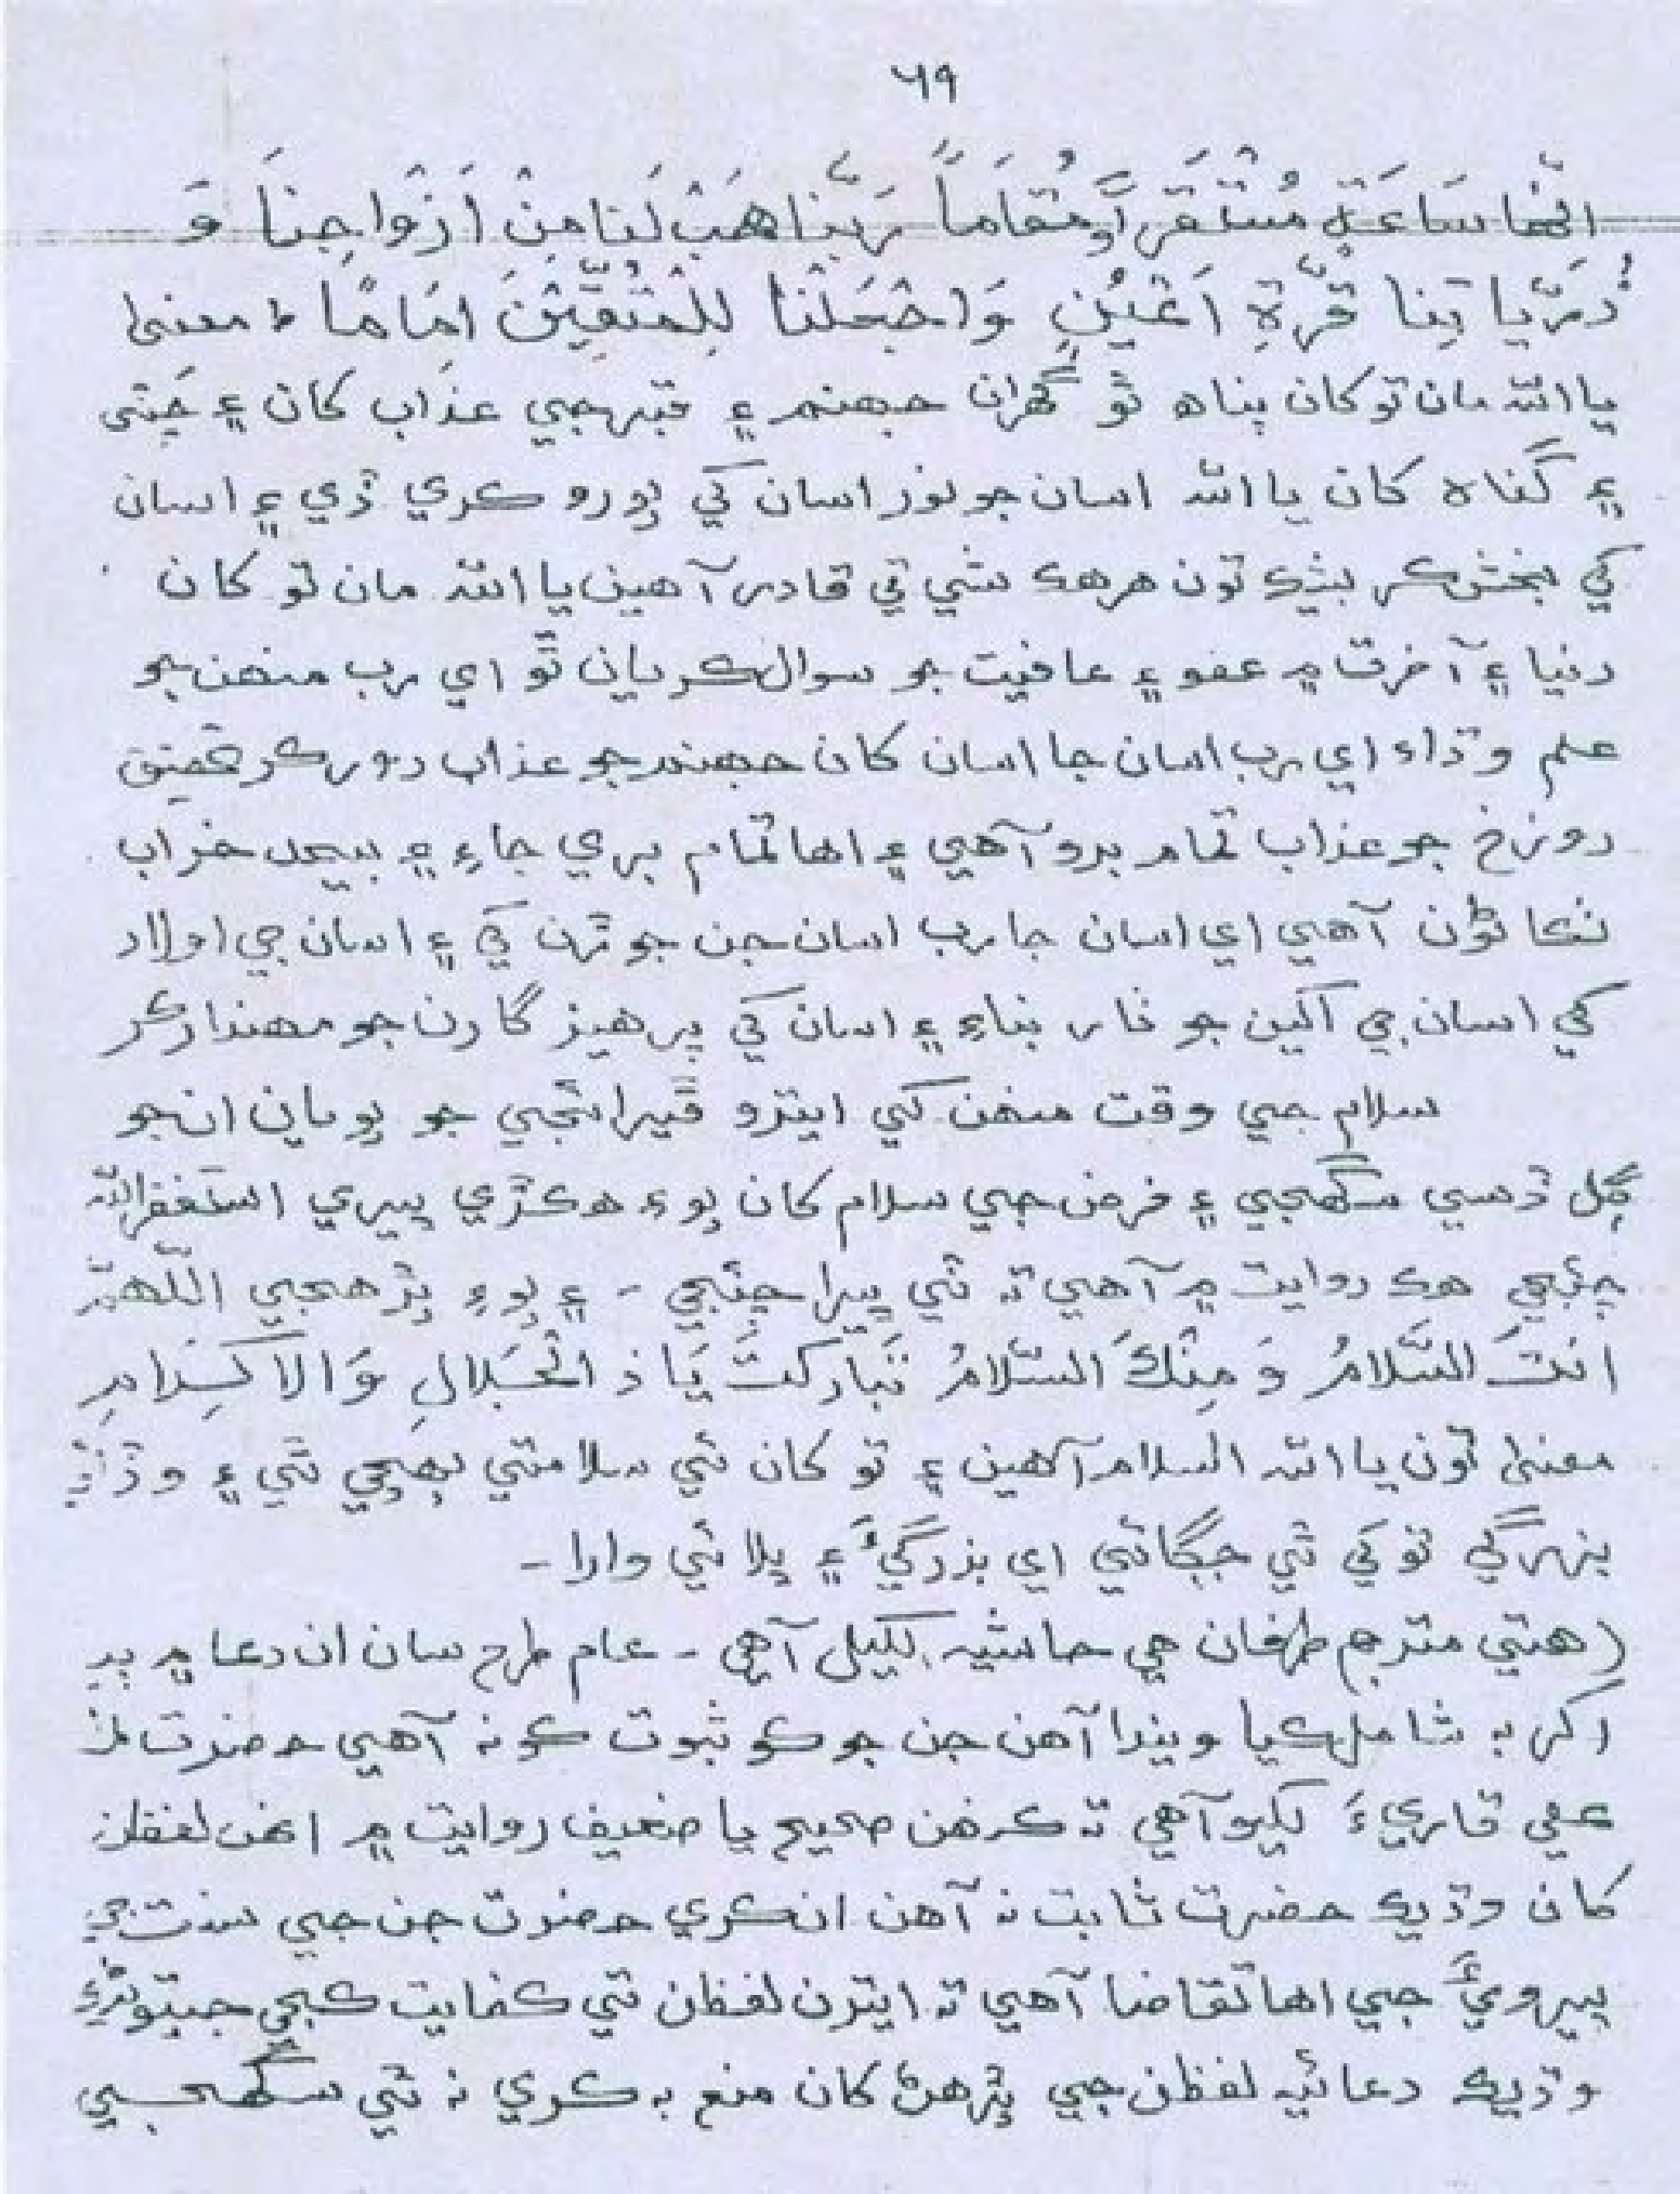 ٦٩
انَّهَا سَاءَتْ مُسْتَقَرًّا وَّمُقَاماً رَبَّنَا هَبْ لَنَا مِنْ اَزْوَاجِنَا وَ
ذُرِّيَّاتِنَا قُرَّةِ اَعْيُنٍ وَاجْعَلْنَا لِلْمُتَّقِيْنَ اِمَامًا ط معنىٰ
يا الله مان توکان پناهه ٿو گهران جهنم ۽ قبر جي عذاب کان ۽ چٽي
۽ گناهه کان يا الله اسان جو نور اسان کي پورو ڪري ڏي ۽ اسان
کي بخش ڪر بيشڪ تون هر هڪ شي تي قادر آهين يا الله مان تو کان
دنيا ۽ آخرت ۾ عفو ۽ عافيت جو سوال ڪريان ٿو اي رب منهن جو
علم وڌاء اي رب اسان جا اسان کان جهنم جو عذاب دور ڪر تحقيق
دوزخ جو عذاب تمام برو آهي ۽ اها تمام بري جاءِ ۽ بيحد خراب
ٺڪاڻون آهي اي اسان جا رب اسان جن جوڙن کي ۽ اسان جي اولاد
کي اسان جي اکين جو ٺار بناءِ ۽ اسان کي پرهيز گارن جو مهندار ڪر
سلام جي وقت منهن کي ايترو ڦيرائجي جو پويان انجو
ڳل ڏسي سگهجي ۽ فرض جي سلام کان پوءِ هڪڙي ڀيري استغفرالله
چئجي هڪ روايت ۾ آهي ته ٽي ڀيرا چئجي - ۽ پوءِ پڙهجي اللّهمّ
انتَ السَّلامُ وَ مِنْكَ السَّلامُ تَبَارَكتَ يَا ذ الْجَلالِ وَالاكرَامِ
معنىٰ تون يا الله السلام آهين ۽ تو کان ئي سلامتي پهچي ٿي ۽ وڏي
بزرگي توکي ئي جڳائي اي بزرگيءَ ۽ ڀلائي وارا -
(هتي مترجم طرفان هي حاشيہ لکيل آهي - عام طرح سان ان دعا ۾ ٻيا
اکر به شامل ڪيا ويندا آهن جن جو ڪو ثبوت ڪونه آهي حضرت ملا
علي قاريءَ لکيو آهي ته ڪنهن صحيح يا ضعيف روايت ۾ انهن لفظن
کان وڌيڪ حضرت ثابت نه آهن انڪري حضرت جن جي سنت جي
پيرويءَ جي اها تقاضا آهي ته ايترن لفظن تي ڪفايت ڪجي جيتوڻيڪ
وڌيڪ دعائيہ لفظن جي پڙهڻ کان منع به ڪري نه ٿي سگهجي